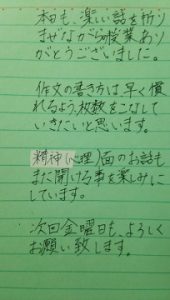 本日も、楽しい話を折り
まぜながらの授業あり
がとうございました。
作文の書き方は、早く慣
れるよう枚数をこなして
いきたいと思います。
精神(心理)面のお話も
また聞ける事を楽しみに
しています。
次回金曜日も、よろしく
お願い致します。